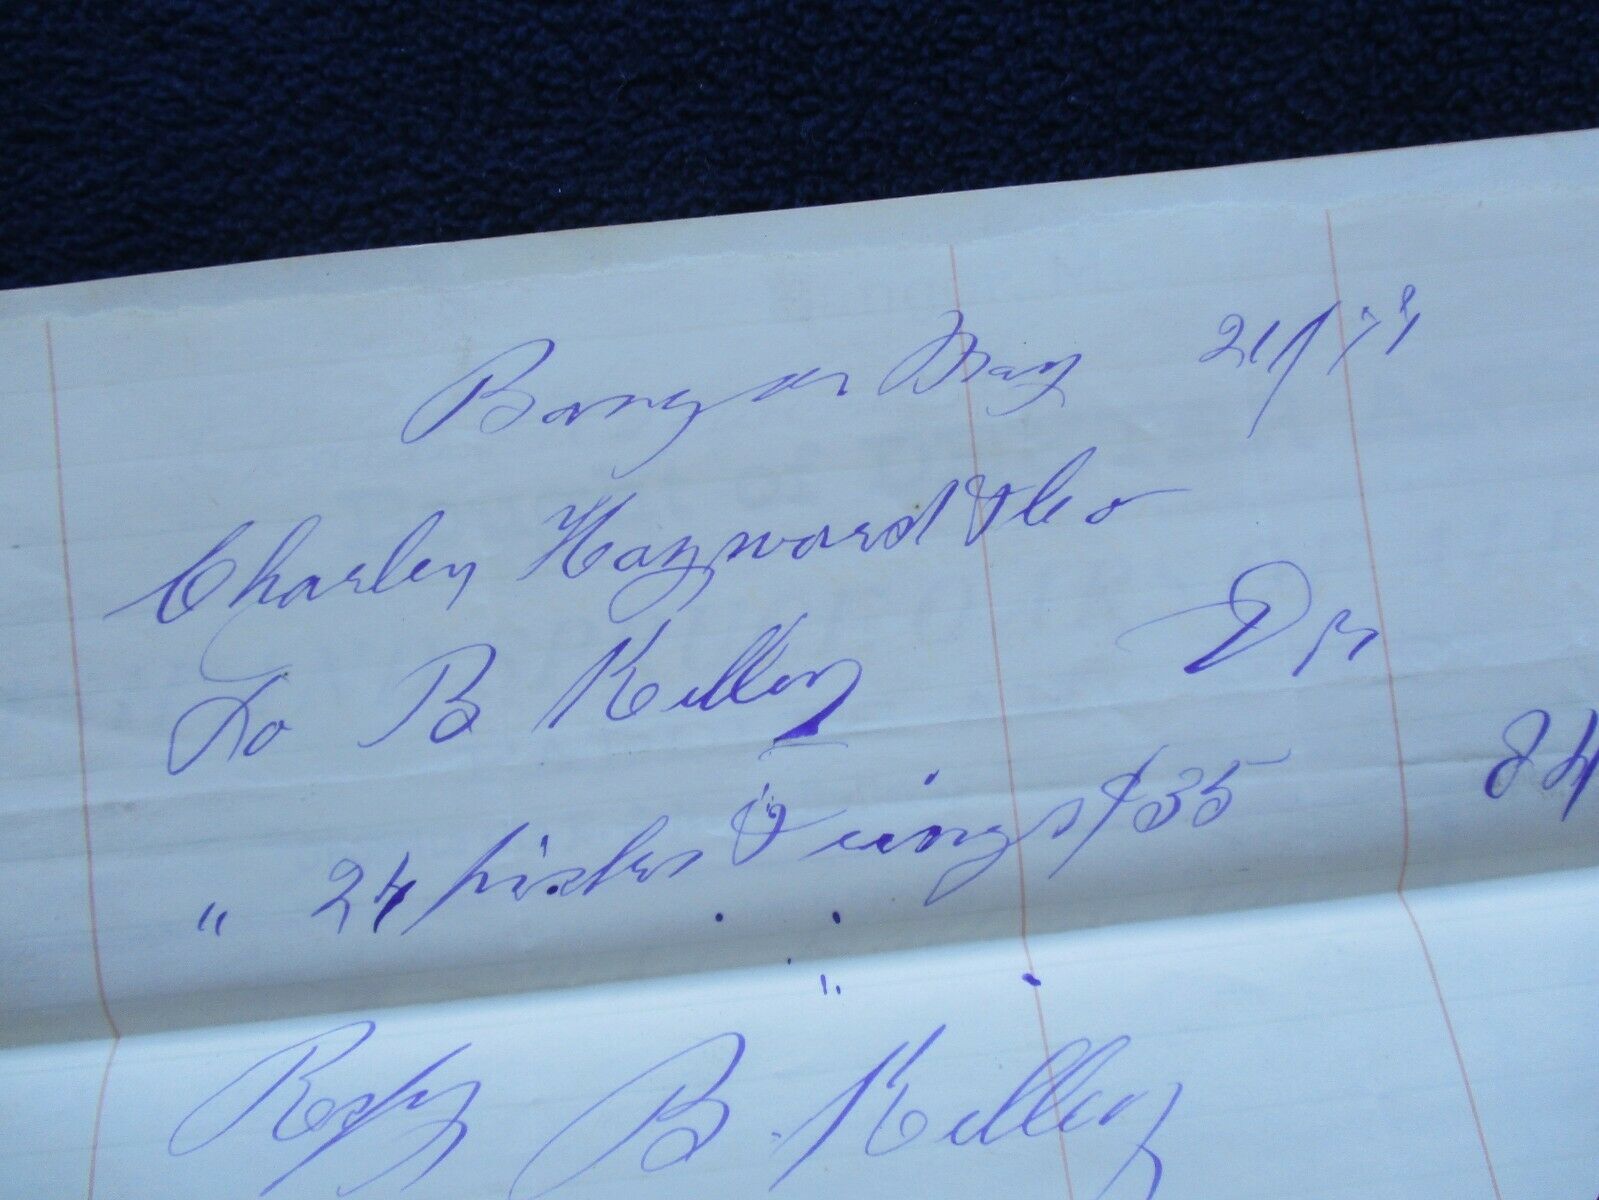 Bangor May 21/78
Charley Hayward & Co
To B Kelley Dr
" 24 & rings $35 84
Rspy B. Kelley